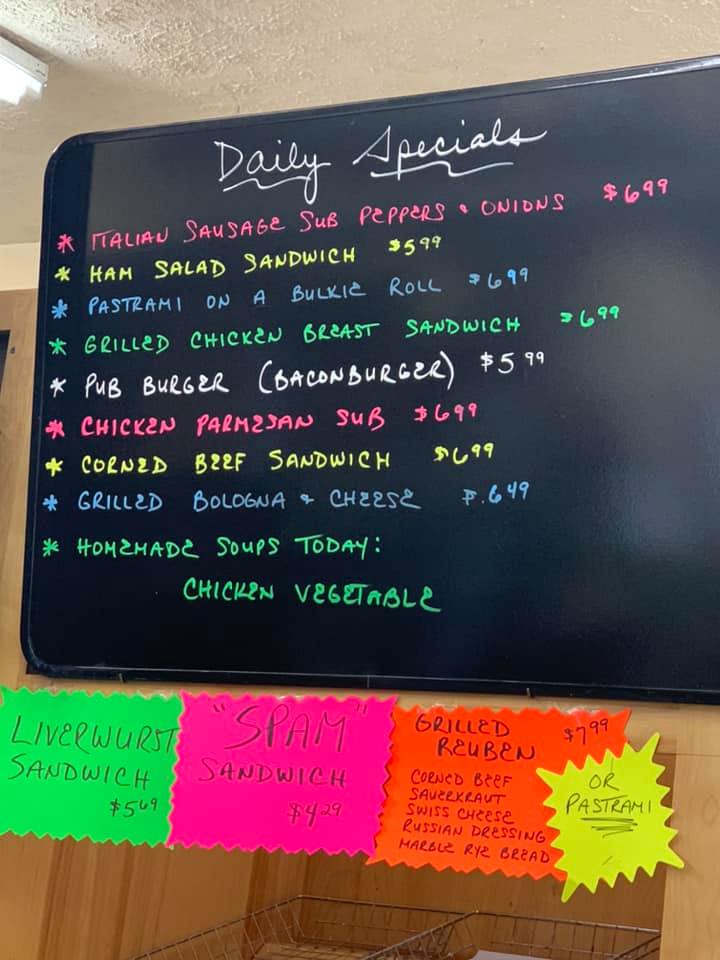 Daily Specials
* ITALIAN SAUSAGE SUB PEPPERS & ONIONS $6.99
* HAM SALAD SANDWICH $5.99
* PASTRAMI ON A BULKIE ROLL $6.99
* GRILLED CHICKEN BREAST SANDWICH $6.99
* PUB BURGER (BACONBURGER) $5.99
* CHICKEN PARMESAN SUB $6.99
* CORNED BEEF SANDWICH $6.99
* GRILLED BOLOGNA & CHEESE $6.49
* HOMEMADE SOUPS TODAY:
CHICKEN VEGETABLE
LIVERWURST
SANDWICH
$5.69
"SPAM"
SANDWICH
$4.29
GRILLED $7.99
REUBEN
CORNED BEEF
SAUERKRAUT
SWISS CHEESE
RUSSIAN DRESSING
MARBLE RYE BREAD
OR
PASTRAMI